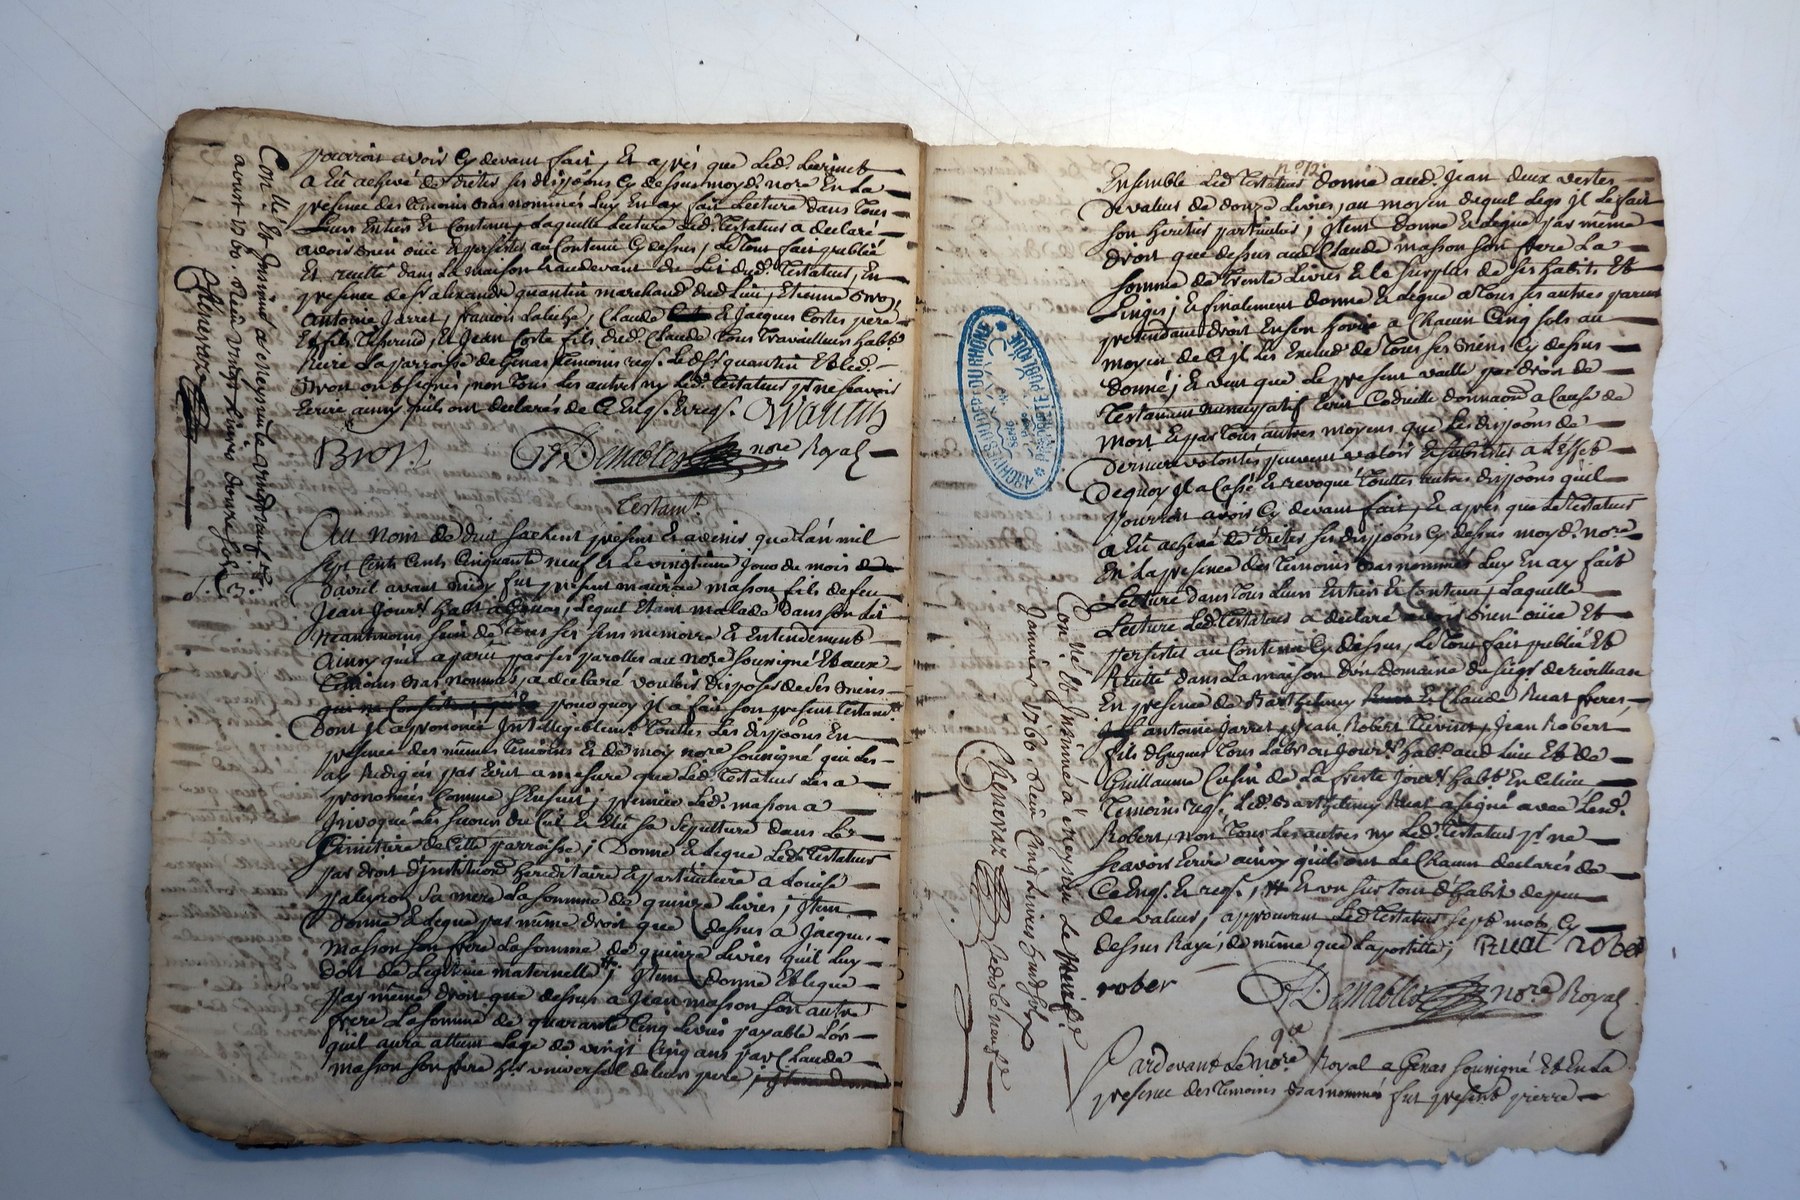 pouvoir avoir Cy devant fait, Et après que Led. 
a Eû achevé de dicter ses dispoõns Cy dessus moyd. nore En la
presence des temoins bas nommés luy En ay fait Lecture dans tout
Leur Entier Et Contenu, Laquelle Lecture Led. testateur a declaré
avoir bien ouïe Et persister au Contenu Cy dessus, Le tout fait publié
Et recitté dans La maison Et audevant du Lit dud. testateur, En
presence de Sr alexandre quantin marchand dud Lieu, Etienne Bron,
antoine Jarret, francois , Claude Et Jacques Costes pere
Et fils , Et Jean Coste fils dud. Claude tous travailleurs habts.
Riere La parroisse de Genas temoins reqs. Led. Sr quantin Et Led.
Bron ont signés, non tous Les autres ny Led. testateur pr ne scavoir
Ecrire ainsy qu'ils ont declarés de Ce Enqs. Et reqs. Quantin
Bron Denables nore Royal
Testamt
Au nom de Dieu sachent presents Et avenir que L'an mil
sept Cents Cinquante neuf Et Le vingtieme Jour du mois
D'avril avant midy fut present maurice masson fils de feu
Jean Jourr. habt. a Genas, Lequel Etant malade dans son Lit
neantmoins sain de tous ses sens memoire Et Entendement
ainsy qu'il a parû par ses parolles au nore soussigné Et aux
temoins bas nommés, a declaré vouloir disposer de Ses biens
pourquoy Il a fait son present testamt.
Dont Il a prononcé Intelligiblemt. toutes Les dispoõns En
presence des memes temoins Et de moy nore soussigné qui Les
ay Redigées par Ecrit a mesure que Led. testateur Les a
prononcées Comme S'Ensuit; premier Led. masson a
Invoqué Les secours du Ciel Et Elû sa sepulture dans Le
Cimetiere de Cette parroisse; Donne Et Legue Led. testateur
par droit d'institution hereditaire Et particuliere a Louise
 sa mere La somme de quinze Livres; Item
Donne Et Legue par même droit que dessus a Jacques
masson son frere La somme de quinze Livres qu'il Luy
doit de Legitime maternelle; Item donne Et Legue
par même droit que dessus a Jean masson son autre
frere La somme de quarante Cinq Livres payable Lors
qu'il aura atteint L'age de vingt Cinq ans par Claude
masson son frere her universel de Leur pere;
Con.llé Et Insinué a meyzieu Le vingt neuf
avril 1760. Reçu vingt Livres douze sols
Chenavaz
no 12.
Ensemble Led. testateur donne aud. Jean deux vestes
De valeur de douze Livres, au moyen dequel Legs Il Le fait
son heritier particulier; Item donne Et Legue par même
droit que dessus aud Claude masson son frere La
somme de trente Livres Et Le surplus de ses habits Et
Linges; Et finalement donne Et Legue a tous ses autres parens
pretendant droit En son hoirie a Chacun Cinq sols au
moyen de Ce Il Les Exclud de tous ses biens Cy dessus
donné; Et veut que Le present vaille par droit de
testament nuncupatif Ecrit Codicille donnaõn a Cause de
mort Et par tous autres moyens que Les dispoõns de
Derniere volontés peuvent valoir Et subsister a L'Effet
Dequoy Il a Cassé Et revoqué touttes autres dispoõns qu'il
pourroit avoir Cy devant fait, Et après que Le testateur
a Eû achevé de dicter ses dispoõns Cy dessus moyd. nore
En La presence des temoins bas nommés Luy En ay fait
Lecture dans tous Leur Entier Et Contenu, Laquelle
Lecture Led. testateur a declaré avoir bien ouïe Et
persister au Contenu Cy dessus, Le tout fait publié Et
Recitté dans La maison d'un domaine du seigr.
En presence de Barthelemy Et Claude Ruat freres,
 antoine Jarret, Jean Robert , Jean Robert
fils d'hugues tous Labr ou Jourr. habt. aud Lieu Et de
Guillaume Cusin de La frette Jourr. habt. En Ce Lieu
temoins reqs. Led. Barthelemy Ruat a signé avec Lesd.
Robert, non tous Les autres ny Led. testateur pr ne
scavoir Ecrire ainsy qu'ils ont Le Chacun declarés de
Ce Enqs. Et reqs., # Et un surtout d'habit de peu
de valeur, approuvant Led. testateur sept mots Cy
dessus Rayé, de même que Lapostille; Ruat rober
rober Denables nore Royal
Con.llé Et Insinué a meyzieu Le
Janvier 1766. Reçu Cinq Livres huit sols
Chenavaz
Pardevant Le nore Royal a Genas soussigné Et En La
presence des temoins bas nommés fut present pierre
ARCHIVES DU DEP. DU RHONE
PROPRIETE PUBLIQUE